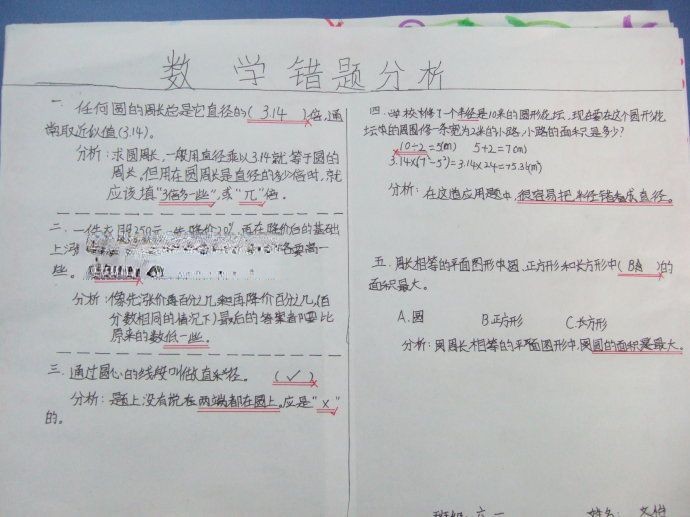 数学错题分析
一. 任何圆的周长总是它直径的( 3.14 )倍,通
常取近似值(3.14)。
分析:求圆周长,一般用直径乘以3.14就等于圆的
周长。但用在圆周长是直径的多少倍时,就
应该填"3倍多一些",或"π"倍。
二.一件衣服250元,先降价20%,再在降价后的基础
上涨
些。
分析:像先涨价百分之几和再降价百分之几(百
分数相同的情况下)最后的答案都要比
原来的数低一些。
三.通过圆心的线段叫做直径。 ( ✓ )
分析:题上没有说在两端都在圆上。应是"×"
的。
四.学校修了一个半径是10米的圆形花坛,现在要在这个圆形花
坛的周围修一条宽为2米的小路,小路的面积是多少?
10÷2=5(m) 5+2=7(m)
3.14×(7²-5²)=3.14×24=75.36(m²)
分析:在这道应用题中,很容易把半径错看成直径。
五.周长相等的平面图形中圆、正方形和长方形中( B )的
面积最大。
A.圆 B正方形 C.长方形
分析:周长相等的平面图形中,圆的面积是最大。
班级:六一 姓名: